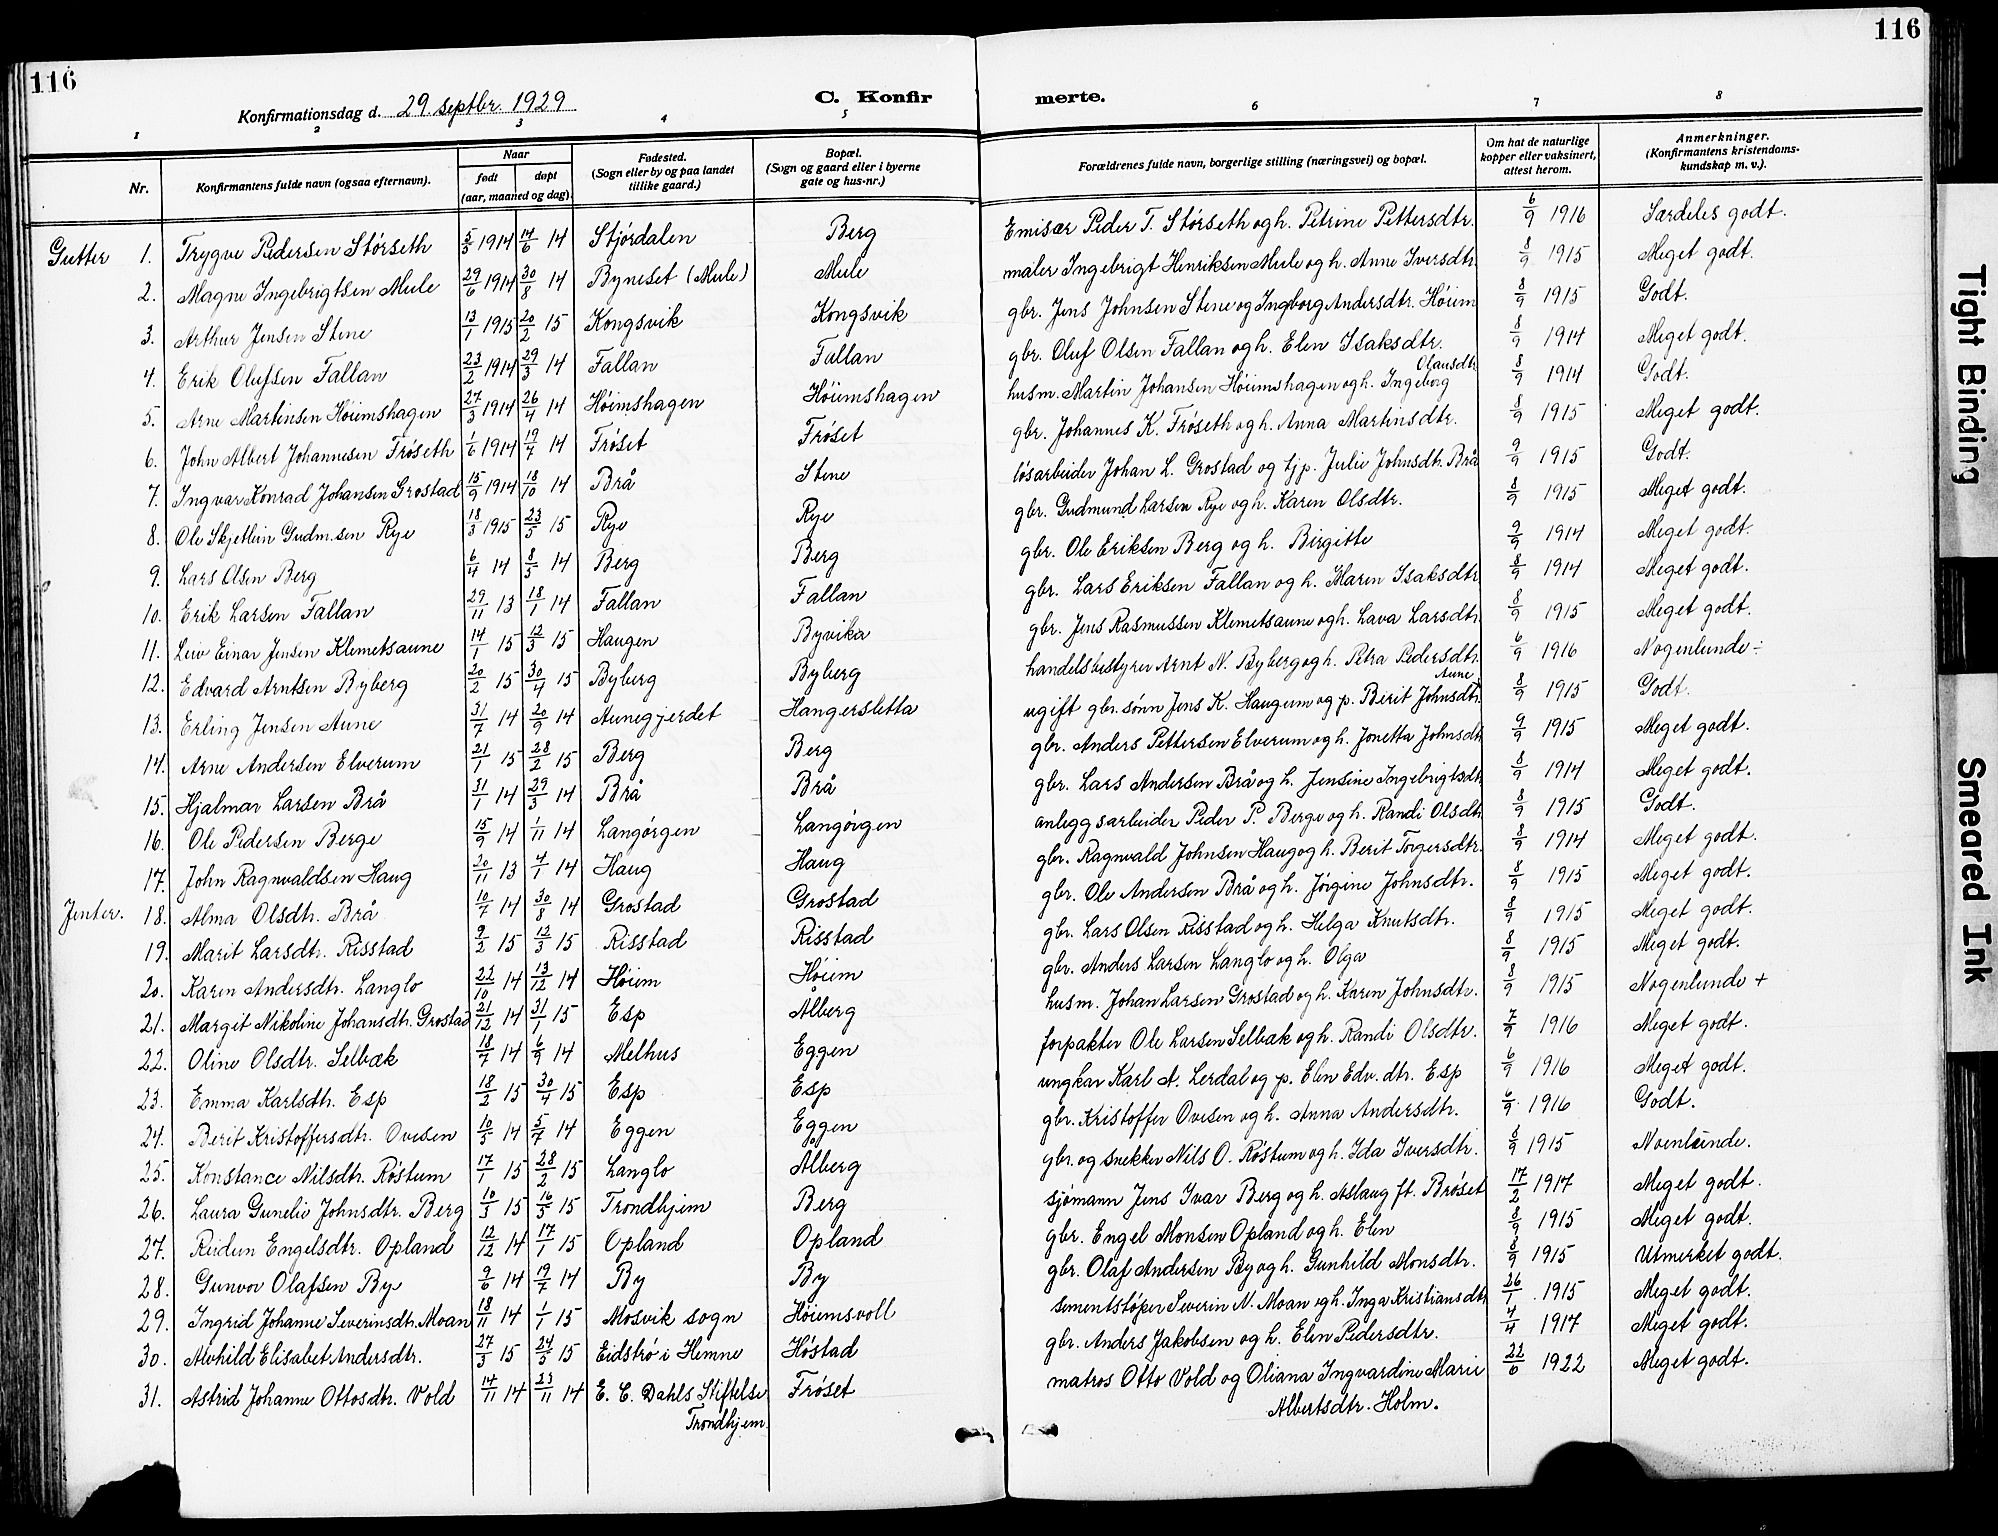 116
116
Konfirmationsdag d. 29. septbr. 1929
C. Konfirmerte.
1 2 3 4 5 6 7 8
Nr. Konfirmantens fulde navn (ogsaa efternavn). Naar født døpt (aar, maaned og dag) Fødested. (Sogn eller by og paa landet tillike gaard.) Bopæl. (Sogn og gaard eller i byerne gate og hus-nr.) Forældrenes fulde navn, borgerlige stilling (næringsvei) og bopæl. Om hat de naturlige kopper eller vaksinert, attest herom. Anmerkninger. (Konfirmantens kristendomskundskap m. v.).
Gutter 1. Trygve Pedersen Störseth 5/3 1914 14/6 14 Stjördalen Berg Emisær Peder T. Störseth og h. Petrine Pettersdtr. 6/9 1916 Særdeles godt.
2. Magne Ingebrigtsen Mule 29/6 1914 30/8 14 Byneset (Mule) Mule maler Ingebrigt Henriksen Mule og h. Anne Iversdtr. 8/9 1915 Meget godt.
3. Arthur Jensen Stene 13/1 1915 20/2 15 Kongsvik Kongsvik gbr. Jens Johnsen Stene og Ingborg Andersdtr. Höium 8/9 1915 Godt.
4. Erik Olufsen Fallan 23/2 1914 29/3 14 Fallan Fallan gbr. Oluf Olsen Fallan og h. Elen Isaksdtr. 8/9 1914 Meget godt.
5. Arne Martinsen Höiumshagen 27/3 1914 26/4 14 Höimshagen Höiumshagen husm. Martin Johansen Höiumshagen og h. Ingeborg Olausdtr. 8/9 1914 Godt.
6. John Albert Johannesen Fröseth 1/6 1914 19/7 14 Fröset Fröset gbr. Johannes K. Fröseth og h. Anna Martinsdtr. 8/9 1915 Meget godt.
7. Ingvar Konrad Johansen Grostad 15/9 1914 18/10 14 Brå Stene lösarbeider Johan L. Grostad og tj. p. Julie Johnsdtr. Brå 9/9 1915 Godt.
8. Ole Skjetlein Gudm.sen Rye 18/3 1915 23/5 15 Rye Rye gbr. Gudmund Larsen Rye og h. Karen Olsdtr. 8/9 1915 Meget godt.
9. Lars Olsen Berg 6/4 14 8/3 14 Berg Berg gbr. Ole Eriksen Berg og h. Birgitte 9/9 1914 Meget godt.
10. Erik Larsen Fallan 29/11 13 18/1 14 Fallan Fallan gbr. Lars Eriksen Fallan og h. Maren Isaksdtr. 8/9 1914 Meget godt.
11. Leiv Einar Jensen Klemetsaune 14/1 15 12/3 15 Haugen Byvika gbr. Jens Rasmussen Klemetsaune og h. Lava Larsdtr. 8/9 1915 Meget godt.
12. Edvard Arntsen Byberg 20/2 15 30/4 15 Byberg Byberg handelsbestyrer Arnt N. Byberg og h. Petra Pedersdtr. 6/9 1916 Nogenlunde ÷
13. Erling Jensen Aune 31/7 14 20/9 14 Aunegjerdet Hangersletta ugift gbr. sönn Jens K. Haugum og p. Berit Johnsdtr. Aune 8/9 1915 Godt.
14. Arne Andersen Elverum 21/1 15 28/2 15 Berg Berg gbr. Anders Pettersen Elverum og h. Jonetta Johnsdtr. 9/9 1915 Meget godt.
15. Hjalmar Larsen Brå 31/1 14 29/3 14 Brå Brå gbr. Lars Andersen Brå og h. Jensine Ingebrigtsdtr. 8/9 1914 Meget godt.
16. Ole Pedersen Berge 15/9 14 1/11 14 Langörgen Langörgen anleggsarbeider Peder P. Berge og h. Randi Olsdtr. 8/9 1915 Godt.
17. John Ragnvaldsen Haug 20/11 13 4/1 14 Haug Haug gbr. Ragnvald Johnsen Haug og h. Berit Torgersdtr. 8/9 1914 Meget godt.
Jenter. 18. Alma Olsdtr. Brå 10/7 14 30/8 14 Grostad Grostad gbr. Ole Andersen Brå og h. Jörgine Johnsdtr. 8/9 1915 Meget godt.
19. Marit Larsdtr. Risstad 9/2 15 12/3 15 Risstad Risstad gbr. Lars Olsen Risstad og h. Helga Knutsdtr. 8/9 1915 Meget godt.
20. Karen Andersdtr. Langlo 22/10 14 13/12 14 Höium Höium gbr. Anders Larsen Langlo og h. Olga 8/9 1915 Meget godt.
21. Margit Nikoline Johansdtr. Grostad 21/12 14 31/1 15 Esp Ålberg husm. Johan Larsen Grostad og h. Karen Johnsdtr. 8/9 1915 Nogenlunde +
22. Oline Olsdtr. Selbæk 18/7 14 6/9 14 Melhus Eggen forpakter Ole Larsen Selbæk og h. Randi Olsdtr. 7/9 1916 Meget godt.
23. Emma Karlsdtr. Esp 18/2 15 30/4 15 Esp Esp ungkar Karl A. Lerdal og p. Elen Edv.dtr. Esp 6/9 1916 Meget godt.
24. Berit Kristoffersdtr. Ovesen 10/5 14 5/7 14 Eggen Eggen gbr. Kristoffer Ovesen og h. Anna Andersdtr. 6/9 1916 Godt.
25. Konstance Nilsdtr. Röstum 17/1 15 28/2 15 Langlo Ålberg gbr. og snekker Nils O. Röstum og h. Ida Iversdtr. 8/9 1915 Noenlunde.
26. Laura Gunelie Johnsdtr. Berg 10/3 15 16/5 15 Trondhjem Berg sjömann Jens Ivar Berg og h. Aslaug ft. Bröset 17/2 1917 Meget godt.
27. Reidun Engelsdtr. Opland 12/12 14 17/1 15 Opland Opland gbr. Engel Monsen Opland og h. Elen 8/9 1915 Meget godt.
28. Gunvor Olafsen By 9/6 14 19/7 14 By By gbr. Olaf Andersen By og h. Gunhild Monsdtr. 8/9 1915 Utmerket godt.
29. Ingrid Johanne Severinsdtr. Moan 18/11 14 1/1 15 Mosvik sogn Höiemsvoll sementstöper Severin N. Moan og h. Inga Kristiansdtr. 26/1 1915 Meget godt.
30. Alvhild Elisabet Andersdtr. 27/3 15 24/5 15 Eidströ i Hemne Höstad gbr. Anders Jakobsen og h. Elen Pedersdtr. 4/4 1917 Meget godt.
31. Astrid Johanne Ottosdtr. Vold 14/11 14 23/11 14 E. C. Dahls Stiftelse Trondhjem Fröset matros Otto Vold og Oliana Ingvardine Marie Albertsdtr. Holm. 22/6 1922 Meget godt.
Tight Binding
Smeared Ink